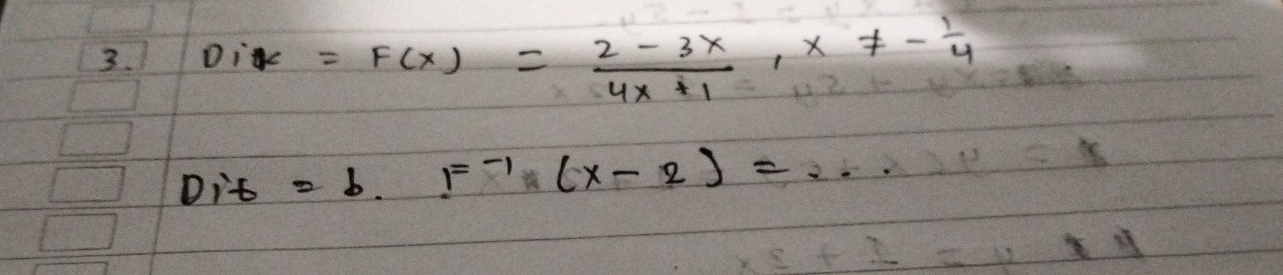 3. Dik = F(x) = 2 - 3x / 4x + 1 , x ≠ - 1/4
Dit = b. F⁻¹ (x - 2) = ...